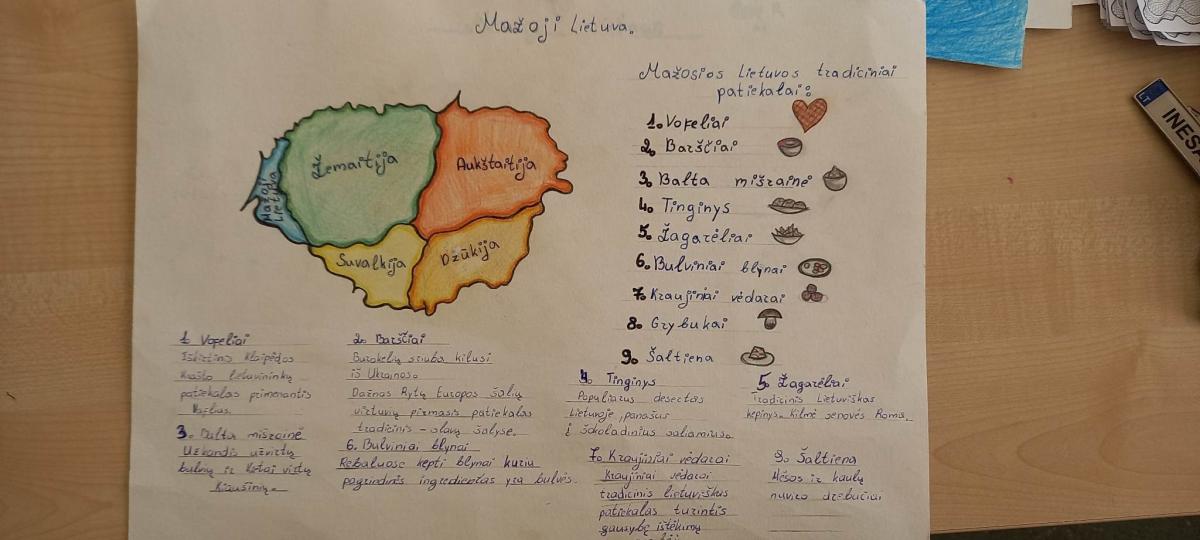 Mažoji Lietuva.
Mažosios Lietuvos tradiciniai
patiekalai:
1. Vofeliai
2. Barščiai
3. Balta mišrainė
4. Tinginys
5. Žagarėliai
6. Bulviniai blynai
7. Kraujiniai vėdarai
8. Grybukai
9. Šaltiena
Mažoji
Lietuva
Žemaitija
Aukštaitija
Suvalkija
Dzūkija
1. Vofeliai
Išskirtinis Klaipėdos
krašto lietuvininkų
patiekalas primenantis
2. Barščiai
Burokėlių sriuba kilusi
iš Ukrainos.
Dažnas Rytų Europos šalių
virtuvių pirmasis patiekalas
tradicinis - slavų šalyse.
3. Balta mišrainė
Užkandis užvirtų
bulvių ir kietai virtų
kiaušinių.
4. Tinginys
Populiarus desertas
Lietuvoje, panašus
į šokoladinius saliamius.
5. Žagarėliai
Tradicinis Lietuviškas
kepinys. Kilmė senovės Roma.
6. Bulviniai blynai
Riebaluose kepti blynai kurių
pagrindinis ingredientas yra bulvės.
7. Kraujiniai vėdarai
Kraujiniai vėdarai
tradicinis lietuviškas
patiekalas turintis
gausybę ištekimų
9. Šaltiena
Mėsos ir kaulų
nuviro drebučiai
LT
INESA